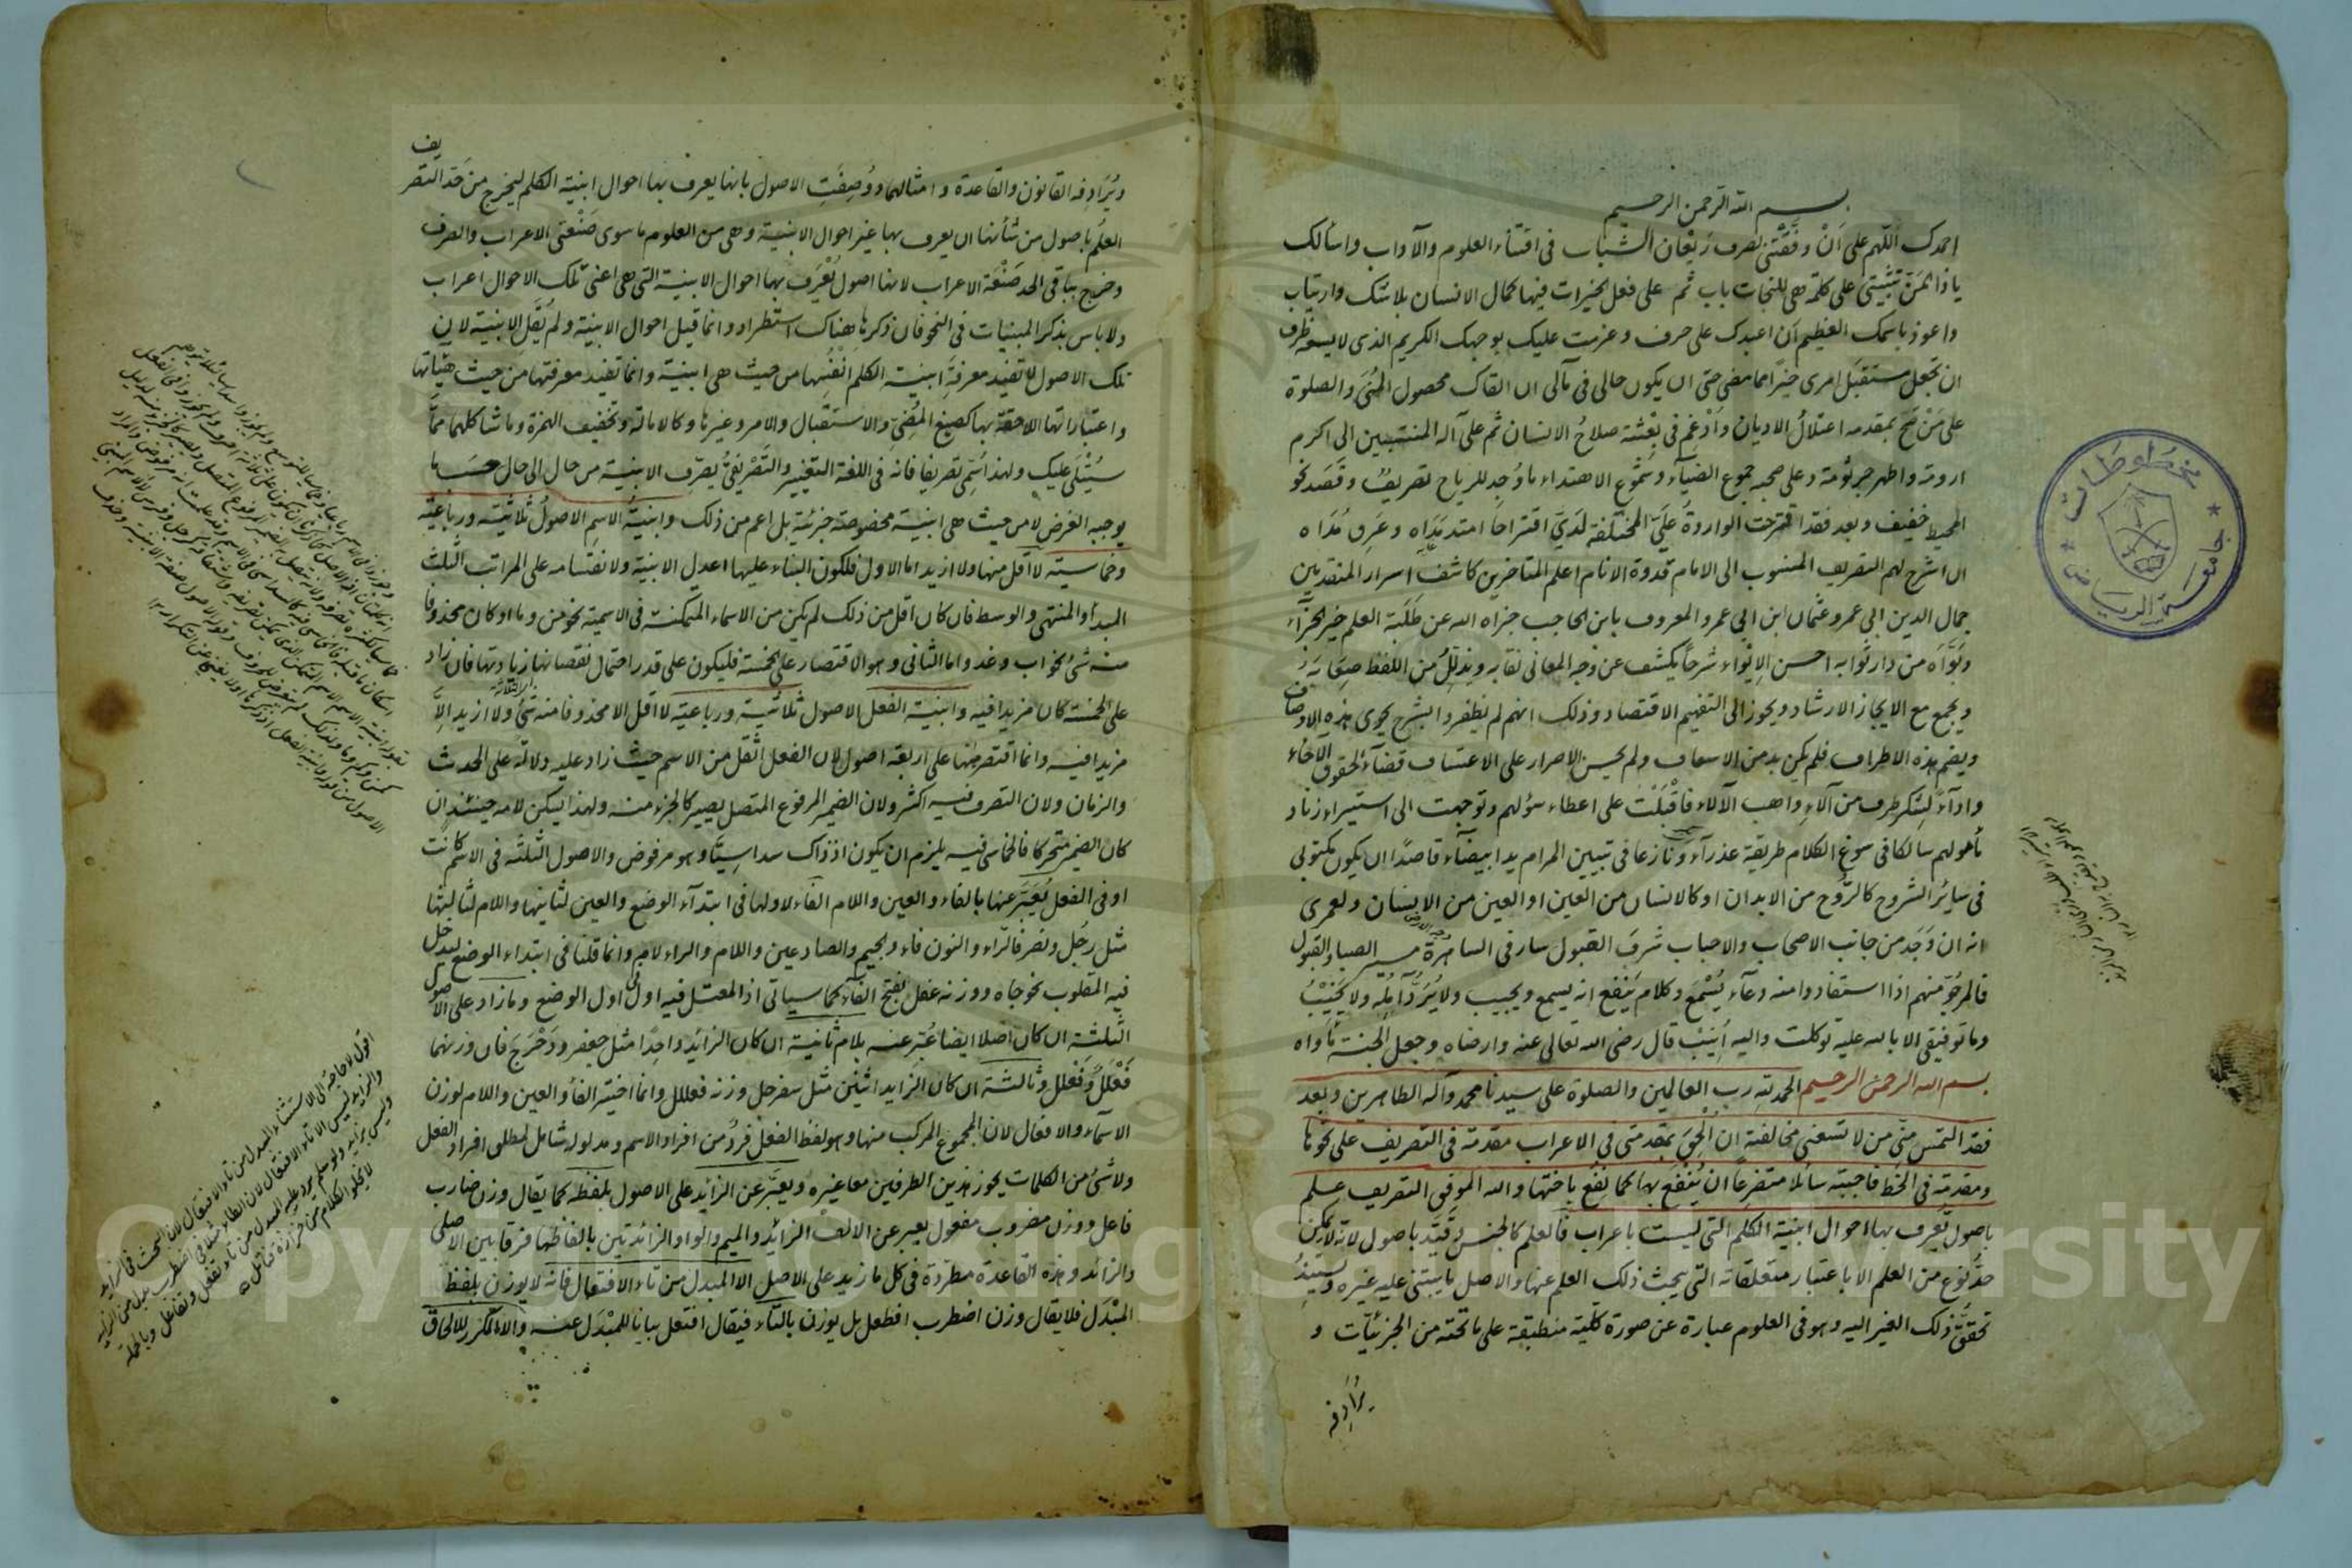 بسم الله الرحمن الرحيم
احمدك اللهم على اَنْ وفَّقْتنى لصرف رَيْعان الشباب فى اقتناء العلوم والآداب واسألك
ياذا المَنّ تثبيتى على كلمة هى للنجات باب ثم على فعل الخيرات فيها كمال الانسان بلا شك وارتياب
واعوذ باسمك العظيم اَن اعبدك على حرف وعزمت عليك بوجهك الكريم الذى لا يسعه ظرف
ان تجعل مستقبَل امرى خيرًا مما مضى حتى ان يكون حالى فى مآلى ان القاك محصول المُنَى والصلوة
على مَنْ بمقدمه اعتلالُ الاديان واَدْغم فى بِعْثته صلاحُ الانسان ثم على آله المنتسبين الى اكرم
ارومة واطهر جرثومة وعلى صحبه جموع الضياء وشموع الاهتداء ما وُجد للرياح تصريفٌ وقَصَد نحو
المحيط خفيف وبعد فقد اقترحت الواردة عَلَىَّ المختلفة لَدَىَّ اقتراحًا امتد مَدَاه وعَرِق مُدَاه
ان اشرح لهم التصريف المنسوب الى الامام قدوة الانام اعلم المتاخرين كاشف اسرار المتقدمين
جمال الدين ابى عمرو عثمان ابن ابى عمرو المعروف بابن الحاجب جزاه الله عن طَلَبَة العلم خير الجزآء
وبَوَّاَه من دار ثوابه احسن الاِثواء شرحًا يكشف عن وجه المعانى نقابه ويذلّلُ من اللفظ صِعَابَه
ويجمع مع الايجاز الارشاد ويحوز الى التفهيم الاقتصاد وذلك انهم لم يظفروا بشرح يحوى هذه الاوصاف
ويضم هذه الاطراف فلم يكن بد من الاسعاف ولم يحسن الاصرار على الاعتساف قضآءً لحقوق الاخاء
واداءً لشكر طرف من آلاءِ واهب الآلاء فاقْبَلْتُ على اعطاء سؤلهم وتوجهت الى استيراء زناد
مأمولهم سالكا فى سوغ الكلام طريقة عذراء ونازعا فى تبيين المرام يدا بيضآء قاصدًا ان يكون مكتوبى
فى سائر الشروح كالرُّوح من الابدان او كالانسان من العين او العين من الانسان ولعمرى
انه ان وَجَد من جانب الاصحاب والاحباب شَرَفَ القبول سار فى الساهرة مسير الصبا والقبول
فالمرجوّ منهم اذا استفادوا منه دعآء يُسْمَع وكلام يَنْفع انه يسمع ويجيب ولا يُرَدُّ آمِلُه ولا يَخيبُ
وما توفيقى الا بالله عليه توكلت واليه اُنيبُ قال رضى الله تعالى عنه وارضاه وجعل الجنة مأواه
بسم الله الرحمن الرحيم الحمد لله رب العالمين والصلوة على سيدنا محمد وآله الطاهرين وبعد
فقد التمس منى من لا تسعنى مخالفته ان اُلْحِقَ بمقدمتى فى الاعراب مقدمة فى التصريف على نحوها
ومقدمة فى الخط فاجبته سائلا متضرعًا ان يُنْفَعَ بها كما نُفِع باختها والله الموفق التصريف عِلم
باصول تُعرف بها احوال ابنية الكلم التى ليست باعراب فالعلم كالجنس وقَيّد باصول لانه لا يمكن
حدُّ نوع من العلم الا باعتبار متعلقاته التى يبحث ذلك العلم عنها والاصل ما يبتنى عليه غيره ويستند
تحققُ ذلك الغير اليه وهو فى العلوم عبارة عن صورة كلية منطبقة على ما تحته من الجزئيات و
يُرَادِفه
ويُرَادِفه القانون والقاعدة وامثالهما ووُصِفَتِ الاصول بانها يعرف بها احوال ابنية الكلم ليخرج من حَدّ التصريف
العلمُ باصول من شأنها ان يعرف بها غير احوال الابنية وهى من العلوم ما سوى صَنْعتى الاعراب والصرف
وخرج بباقى الحد صَنْعَة الاعراب لانها اصول يُعْرَف بها احوال الابنية التى هى اعنى تلك الاحوال اعراب
ولا باس بذكر المبنيات فى النحو فان ذكرها هناك استطراد وانما قيل احوال الابنية ولم يُقَل الابنية لان
تلك الاصول لا تفيد معرفةَ ابنية الكلم انفُسِها من حيث هى ابنية وانما تفيد معرفتها من حيث هيئاتها
واعتباراتها اللاحقة بها كصيغ المُضِىّ والاستقبال والامر وغيرها وكالامالة وتخفيف الهمزة وما شاكلهما ممّا
سيُتْلَى عليك ولهذا سُمّى تصريفا فانه فى اللغة التغيير والتَصْريفىُّ يُصرّف الابنية من حال الى حال حسَب ما
يوجبه الغرض لا من حيث هى ابنية مخصوصة جزئية بل اعم من ذلك وابنية الاسم الاصولُ ثلاثية ورباعية
وخماسية لا اقل منها ولا ازيد اما الاول فلكون البناء عليها اعدل الابنية ولانقسامه على المراتب الثلث
المبدأ والمنتهى والوسط فان كان اقل من ذلك لم يكن من الاسماء المتمكنة فى الاسمية نحو من وما او كان محذوفا
منه شئ نحو اب وغد واما الثانى وهو الاقتصار على الخمسة فليكون على قدر احتمال نقصانها زيادتها فان زاد
على الخمسة كان مزيدا فيه وابنية الفعل الاصول ثلاثية ورباعية لا اقل الا محذوفا منه شئ ولا ازيد الاّ
مزيدا فيه وانما اقتصر منها على اربعة اصول لان الفعل اثقل من الاسم حيث زاد عليه دلالة على الحدث
والزمان ولان التصرف فيه اكثر ولان الضمير المرفوع المتصل يصير كالجزء منه ولهذا يسكن لامه حينئذ ان
كان الضمير متحركا فالخماسى فيه يلزم ان يكون اذ ذاك سداسيًّا وهو مرفوض والاصول الثلثة فى الاسم كانت
او فى الفعل يُعَبَّر عنها بالفاء والعين واللام الفاء لاولها فى ابتدآء الوضع والعين لثانيها واللام لثالثها
مثل رجُل ونصَر فالراء والنون فاء والجيم والصاد عين واللام والراء لام وانما قلنا فى ابتداء الوضع ليدخل
فيه المقلوب نحو جاه ووزنه عفل بفتح الفاء كما سياتى اذ المعتل فيه اول اول الوضع وما زاد على الاصول
الثلثة ان كان اصلا ايضا عُبّر عنه بلام ثانية ان كان الزائد واحِدًا مثل جعفر ودَحْرَجَ فان وزنهما
فَعْلَلٌ وفَعْلَل وثالثة ان كان الزايد اثنين مثل سفرجل وزنه فعللل وانما اختير الفاء والعين واللام لوزن
الاسماء والافعال لان المجموع المركب منها وهو لفظ الفعل فردٌ من افراد الاسم ومدلوله شامل لمطلق افراد الفعل
ولا شئ من الكلمات يحوز هذين الطرفين معا غيره ويعبّر عن الزائد على الاصول بلفظه كما يقال وزن ضارب
فاعل ووزن مضروب مفعول يعبر عن الالف الزائد والميم والواو الزائدتين بالفاظها فرقا بين الاصلى
والزائد وهذه القاعدة مطّردة فى كل ما زيد على الاصل الا المبدل من تاء الافتعال فانه لا يوزن بلفظ
المبْدَل فلا يقال وزن اضطرب افطعل بل يوزن بالتاء فيقال افتعل بيانا للمبْدَل عنه والا المكرّر للالحاق
اقول لا حاجة الى الاستثناء المبدل من تاء الافتعال لان البحث فى الزايد
جامعة الرياض
مخطوطات
Copyright © King Saud University